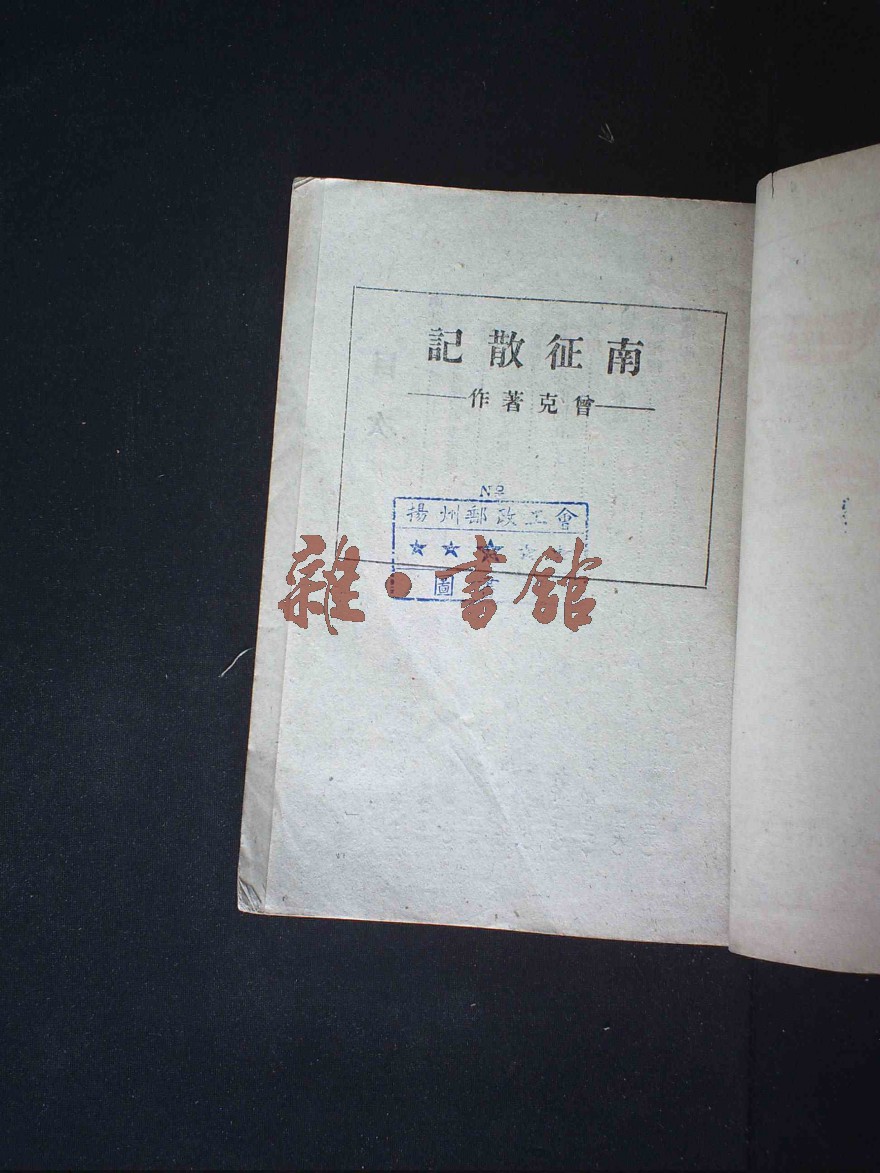 南征散記
——曾克著作——
No
揚州郵政工會
★★★
圖
雜·書館
目次